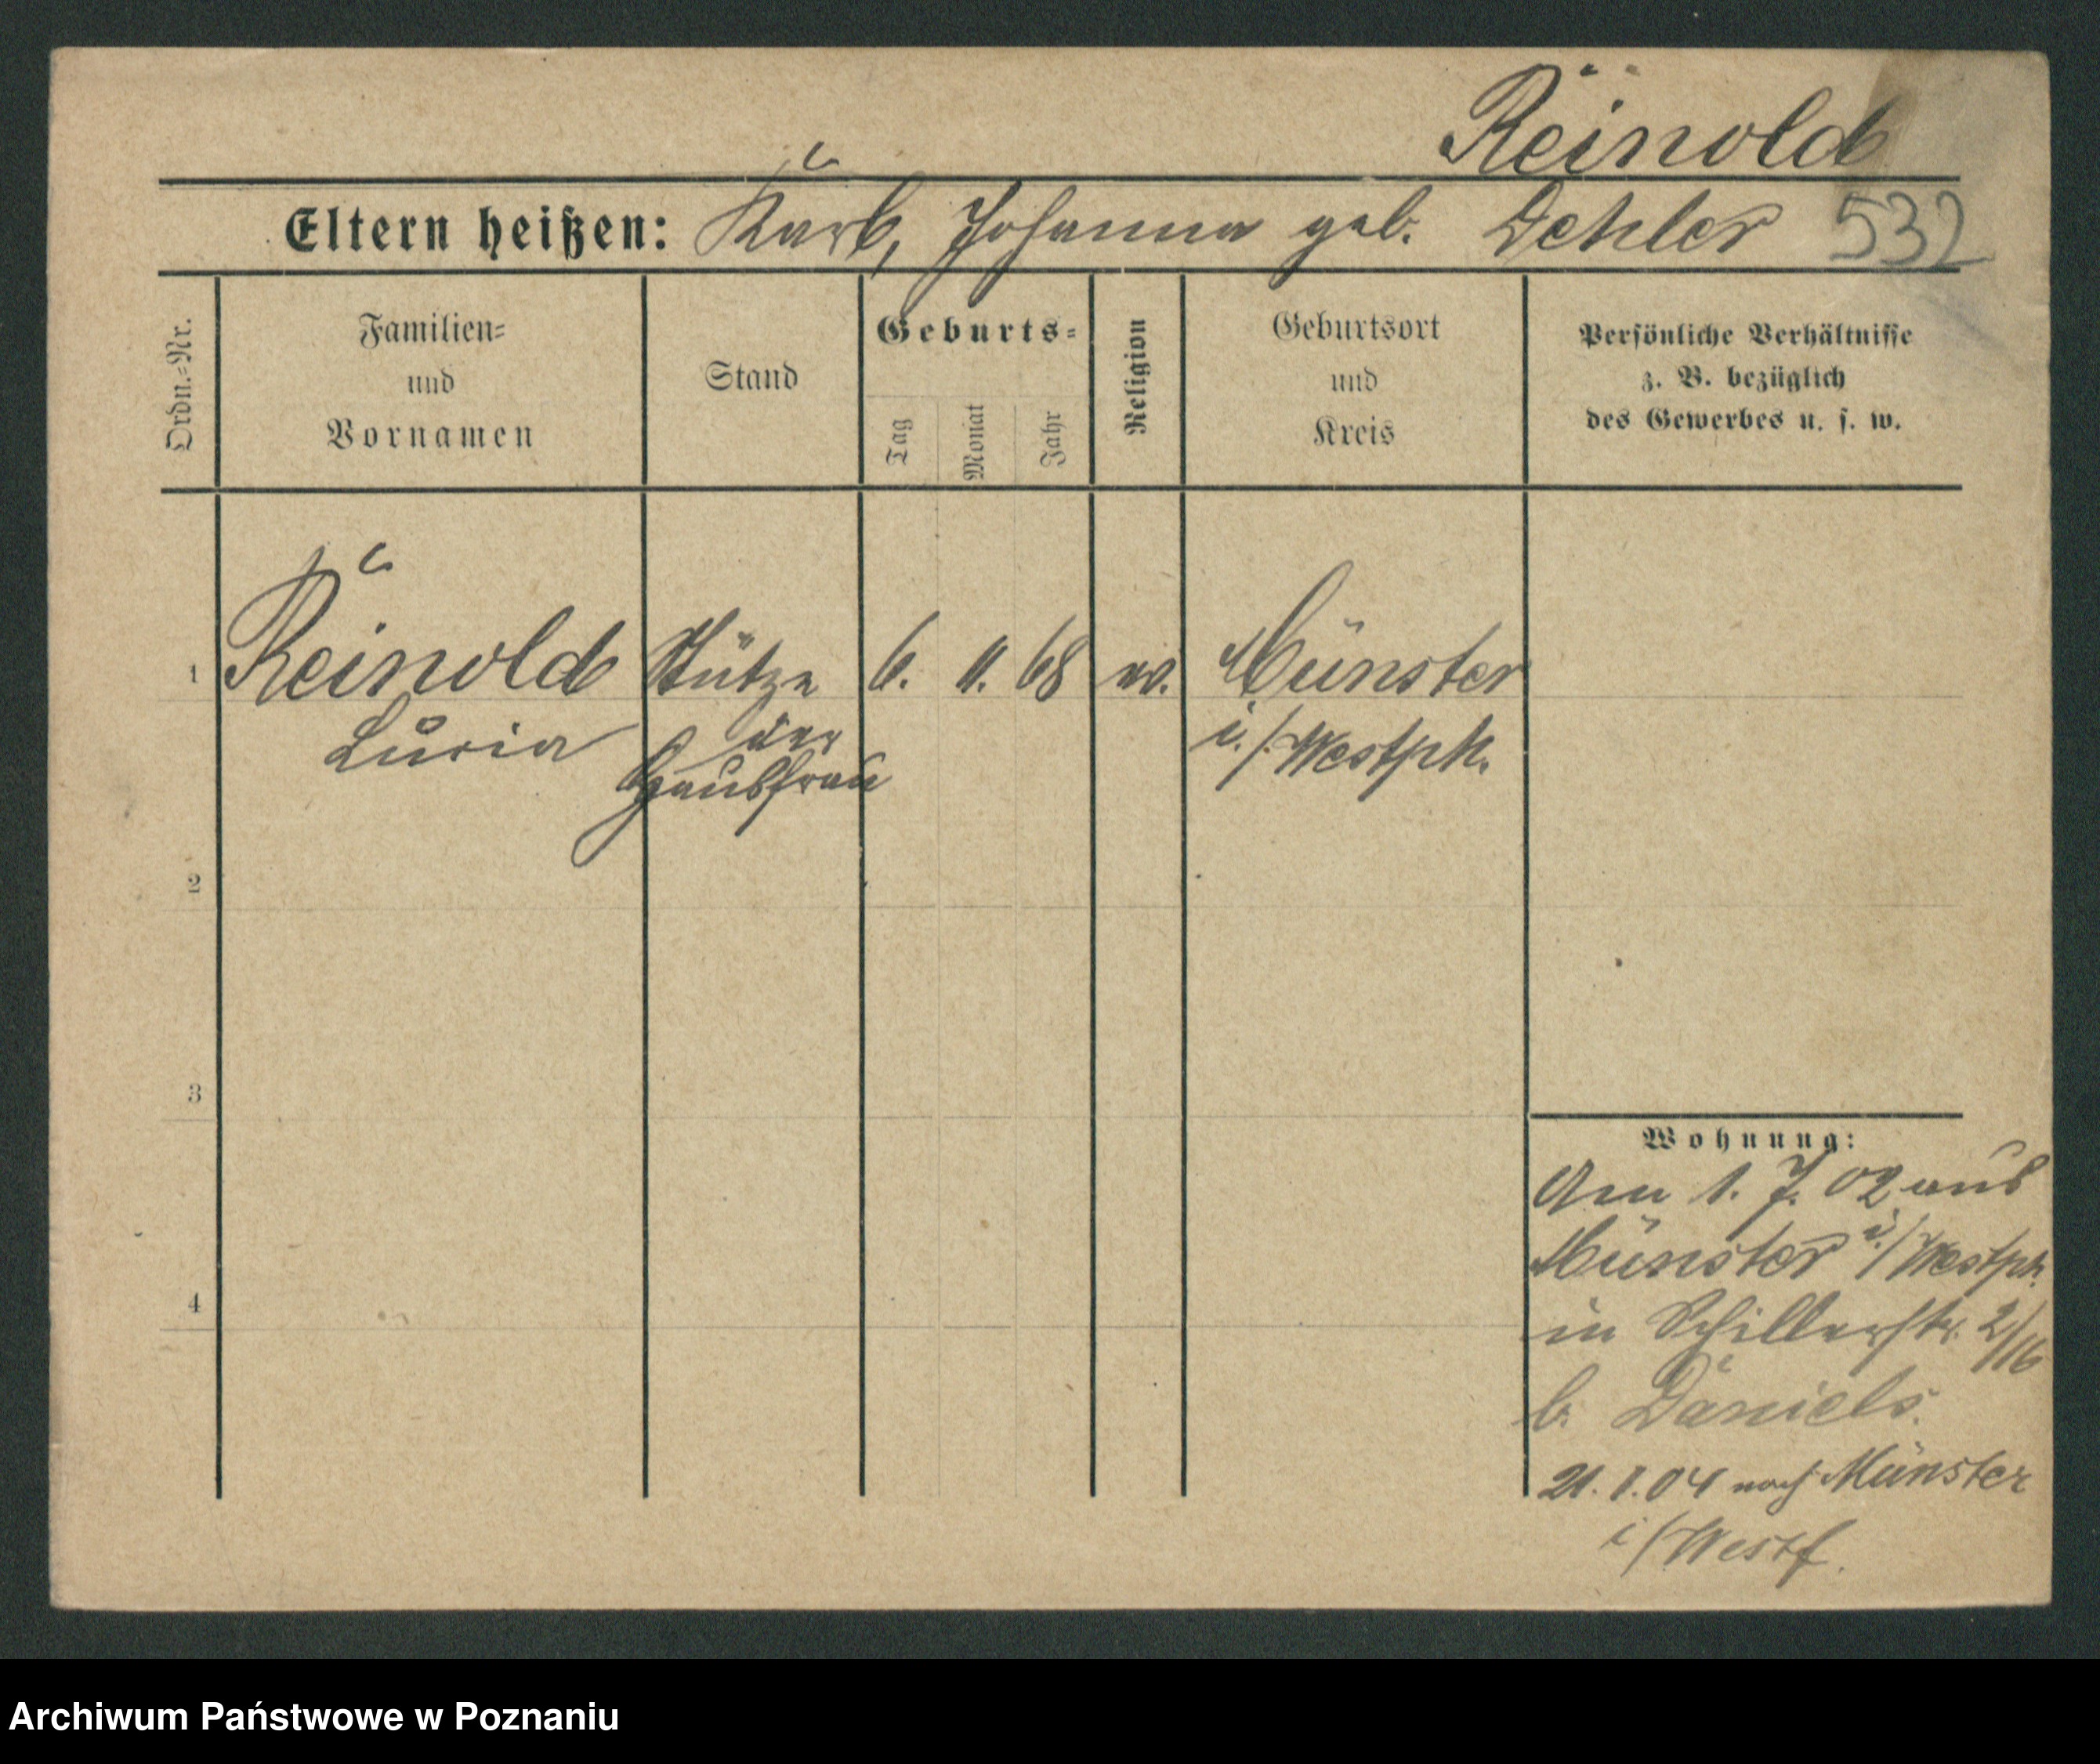 Reinold
Eltern heißen: Karl, Johanna geb. Dehler 532
Ordn.=Nr.
Familien=
und
Vornamen
Stand
Geburts=
Tag
Monat
Jahr
Religion
Geburtsort
und
Kreis
Persönliche Verhältnisse
z. B. bezüglich
des Gewerbes u. s. w.
1 Reinold Stütze 6. 11. 68 ev. Münster
der
Hausfrau
i./Westph.
2
3
4
Wohnung:
Am 1. 7. 02 aus
Münster i./Westph.
in Schillerstr. 2/16
b. Daniels.
21. 1. 04 nach Münster
i/Westf.
Archiwum Państwowe w Poznaniu